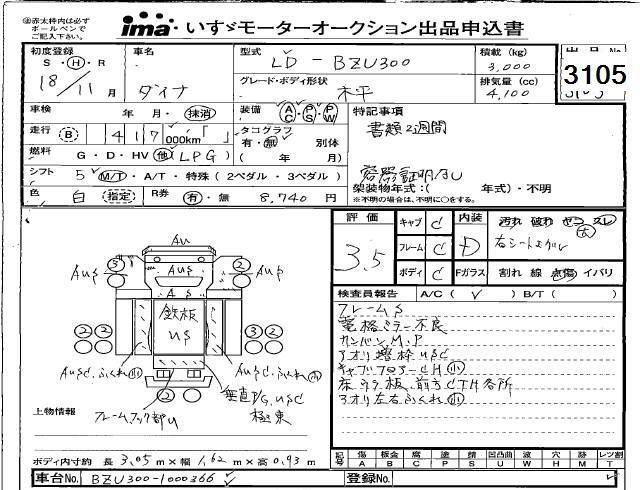 必ず赤太枠内は
ボールペンで
ご記入下さい。
ima いすゞモーターオークション出品申込書
初度登録 車名 型式 LD-BZU300 積載(kg) 3,000
S・H・R 18/11月 ダイナ グレード・ボディ形状 木平 排気量(cc) 4,100
3105
車検 年 月・抹消 装備 AC・PS・PW 特記事項
走行 B 417,000km「 」 タコグラフ 有・無 別体 書類2週間
燃料 G・D・HV 他(LPG) ( 年 月) 容器証明付U
シフト 5 M/T・A/T・特殊(2ペダル・3ペダル) 架装物年式:( 年式)・不明
色 白 指定 R券 有・無 8,740円 ※不明の場合は、不明に○をする。
評価 3.5
キャブ C 内装 D 汚れ 破れ ヤコゲ スレ 大
フレーム C 右シート
ボディ C Fガラス 割れ 線 点傷 イバリ
検査員報告 A/C( ✓ ) B/T( )
フレームS
電格ミラー不良
カンバンM.P
アオリ蝶枠USC
キャブフロアーCH小
アオリ左右ふくれ小
Au
AUS
AUS
AUS
AS
鉄板
US
3 2
2 2 3 2
AUSC.ふくれ小
AUSC.ふくれ小
2
垂直P/G.USC
極東
フレームフック部U
上物情報
ボディ内寸約 長 3.05m×幅 1.62m×高 0.43m
記号 傷A 板金B 腐C 塗P 錆S 凹凸曲U 波W 穴H 時M 無T レツ割L
車台No. BZU300-1000366 登録No.